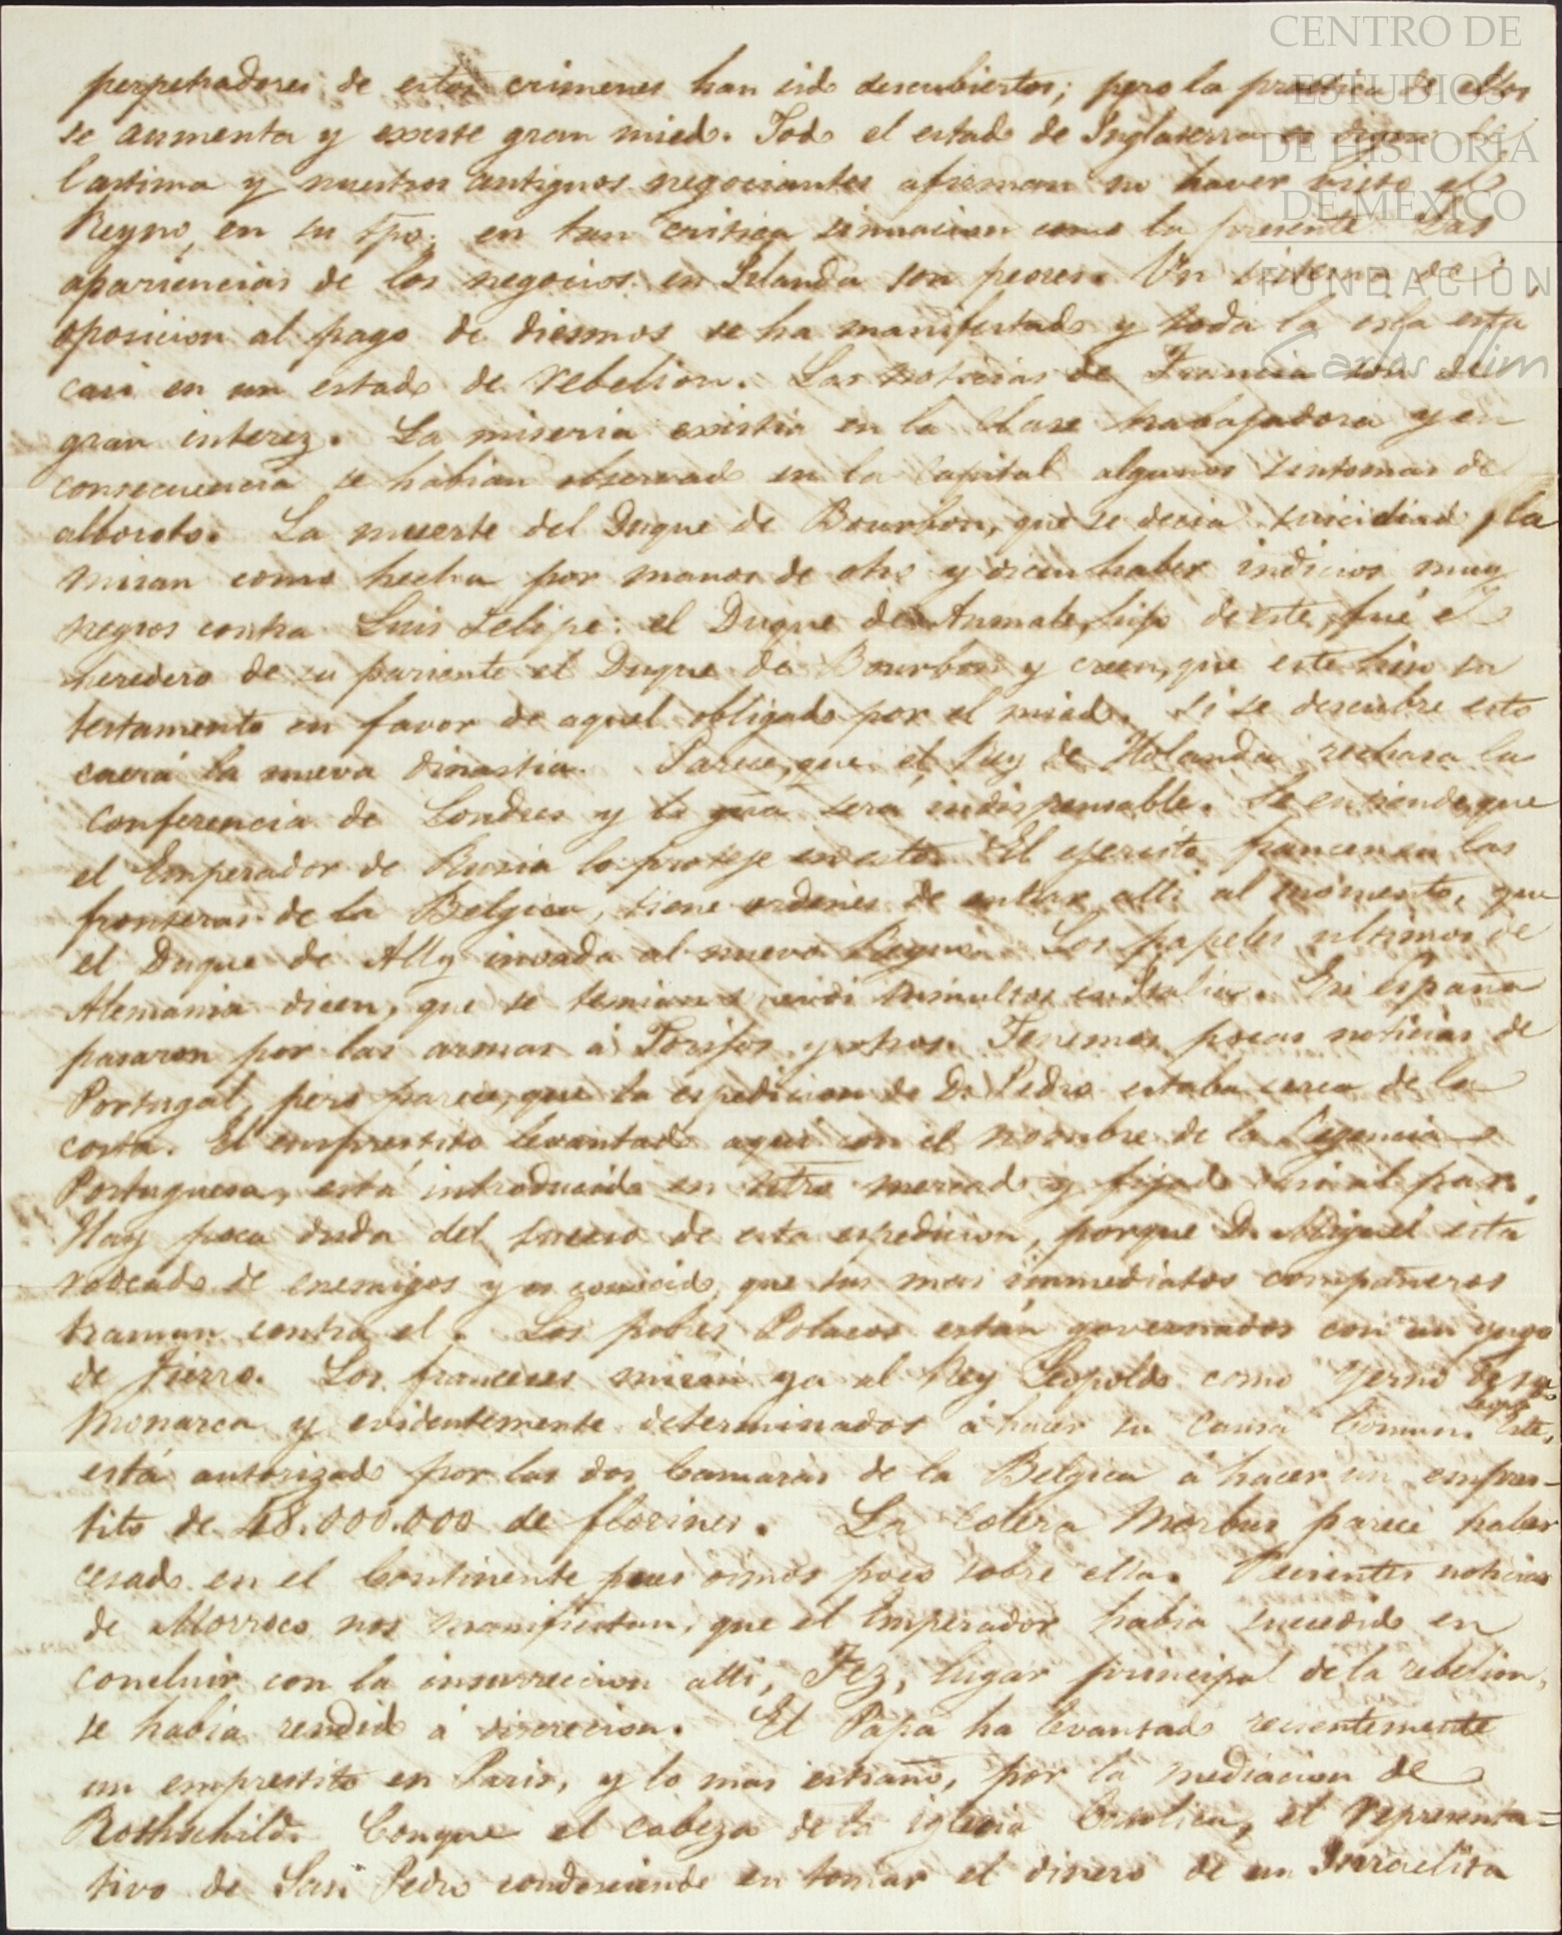 CENTRO DE
ESTUDIOS
DE HISTORIA
DE MEXICO
FUNDACIÓN
Carlos Slim
perpetradores de estos crimenes han sido descubiertos; pero la practica de ellos
se aumenta y existe gran miedo. Todo el estado de Inglaterra es digno de
lastima y nuestros antiguos negociantes afirman no haver visto el
Reyno, en su tpo; en tan critica situacion como la presente. Las
apariencias de los negocios en Irlanda son peores. Un sistema de
oposicion al pago de diesmos se ha manifestado y toda la isla esta
casi en un estado de rebelion. Las noticias de Francia son de
gran interez. La miseria existia en la clase trabajadora y en
consecuencia se habian observado en la Capital algunos sintomas de
alboroto. La muerte del Duque de Bourbon, que se decia suicidado, la
miran como hecha por manos de otro y dicen haber indicios muy
negros contra Luis Felipe: el Duque de Aumale, hijo de este, fué el
heredero de su pariente el Duque de Bourbon y creen, que este hizo su
testamento en favor de aquel obligado por el miedo. Si se descubre esto
caerá la nueva dinastia. Parece, que el Rey de Holanda rechasa la
conferencia de Londres y la grra será indispensable. Se entiende, que
el Emperador de Rusia lo proteje en esto. El ejercito frances en las
fronteras de la Belgica, tiene ordenes de entrar alli al momento, que
el Duque de invada al nuevo Los papeles ultimos de
Alemania dicen, que se temian tumultos en Italia. En españa
pasaron por las armas á Torijos y otros. Tenemos pocas noticias de
Portugal, pero parece, que la espedicion de Dn Pedro estaba cerca de la
costa. El emprestito levantado aqui con el nombre de la Regencia
Portuguesa, está introducido en ntro mercado y fijado casi al par.
Hay poca duda del suceso de esta espedicion, porque Dn Miguel está
rodeado de enemigos y es conocido, que sus mas inmediatos compañeros
traman contra el. Los pobres Polacos están governados con un yugo
de fierro. Los franceses miran ya al Rey Leopoldo como yerno de su
Monarca y evidentemente determinados á hacer su causa comun. Este
Leopdo
está autorizado por las dos Camaras de la Belgica á hacer un empres-
tito de 48.000.000 de florines. La Colera Morbus parece haber
cesado en el Continente pues oimos poco sobre ella. Recientes noticias
de Morroco nos manifiestan, que el Emperador habia sucedido en
concluir con la insurrecion alli, Fez, lugar principal de la rebelion,
se habia rendido á discrecion. El Papa ha levantado recientemente
un emprestito en Paris, y lo mas estraño, por la mediacion de
Rothschild. Conque el cabeza de la iglesia Catolica, el representa=
tivo de San Pedro condesciende en tomar el dinero de un Isrraelita